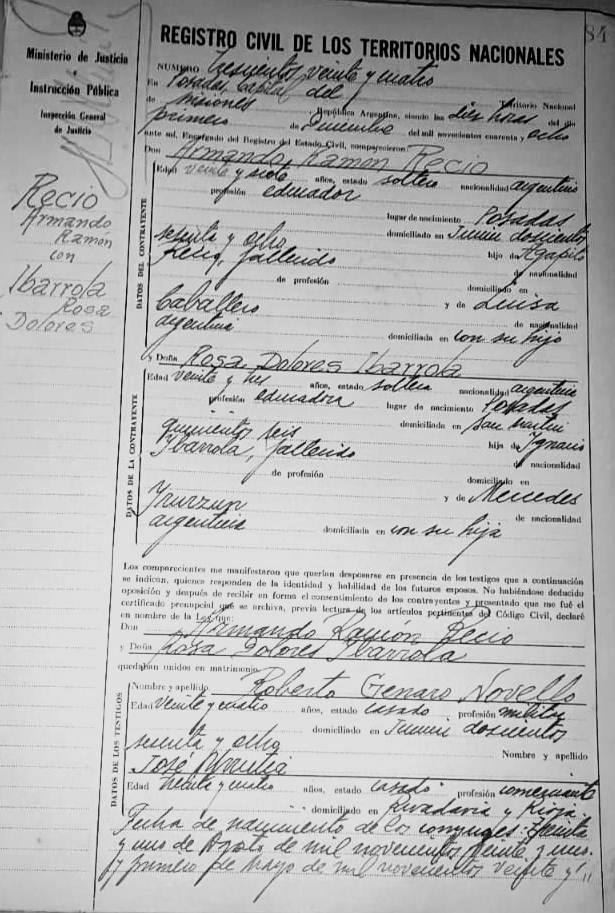 84
Ministerio de Justicia
e
Instrucción Pública
Inspección General
de Justicia
Recio
Armando
Ramón
con
Ibarrola
Rosa
Dolores
REGISTRO CIVIL DE LOS TERRITORIOS NACIONALES
NUMERO trescientos veinte y cuatro
En Posadas, Capital del Territorio Nacional
de Misiones República Argentina, siendo las diez horas del día
primero de del mil novecientos cuarenta y ocho
ante mí, Encargado del Registro del Estado Civil, comparecieron:
Don Armando Ramon Recio
DATOS DEL CONTRAYENTE
Edad veinte y siete años, estado soltero nacionalidad argentino
profesión educador
lugar de nacimiento Posadas
domiciliado en Junin doscientos
sesenta y ocho hijo de Agapito
Recio, fallecido de nacionalidad
de profesión domiciliado en
y de Luisa
Caballero de nacionalidad
argentina domiciliada en con su hijo
y Doña Rosa Dolores Ibarrola
DATOS DE LA CONTRAYENTE
Edad veinte y tres años, estado soltera nacionalidad argentina
profesión educadora lugar de nacimiento Posadas
domiciliada en San Martin
quinientos seis hija de Ignacio
Ibarrola, fallecido de nacionalidad
de profesión domiciliado en
y de Mercedes
Yrurzun de nacionalidad
argentina domiciliada en con su hija
Los comparecientes me manifestaron que querían desposarse en presencia de los testigos que a continuación
se indican, quienes responden de la identidad y habilidad de los futuros esposos. No habiéndose deducido
oposición y después de recibir en forma el consentimiento de los contrayentes y presentado que me fué el
certificado prenupcial que se archiva, previa lectura de los artículos pertinentes del Código Civil, declaré
en nombre de la Ley que:
Don Armando Ramón Recio
y Doña Rosa Dolores Ibarrola
quedaban unidos en matrimonio.
DATOS DE LOS TESTIGOS
Nombre y apellido Roberto Genaro Novello
Edad veinte y cuatro años, estado casado profesión militar
domiciliado en Junin doscientos
sesenta y ocho Nombre y apellido
José
Edad treinta y cuatro años, estado casado profesión comerciante
domiciliado en Rivadavia y Rioja
Fecha de nacimiento de los conyuges: treinta
y uno de Agosto de mil novecientos veinte y uno
y primero de mayo de mil novecientos veinte y